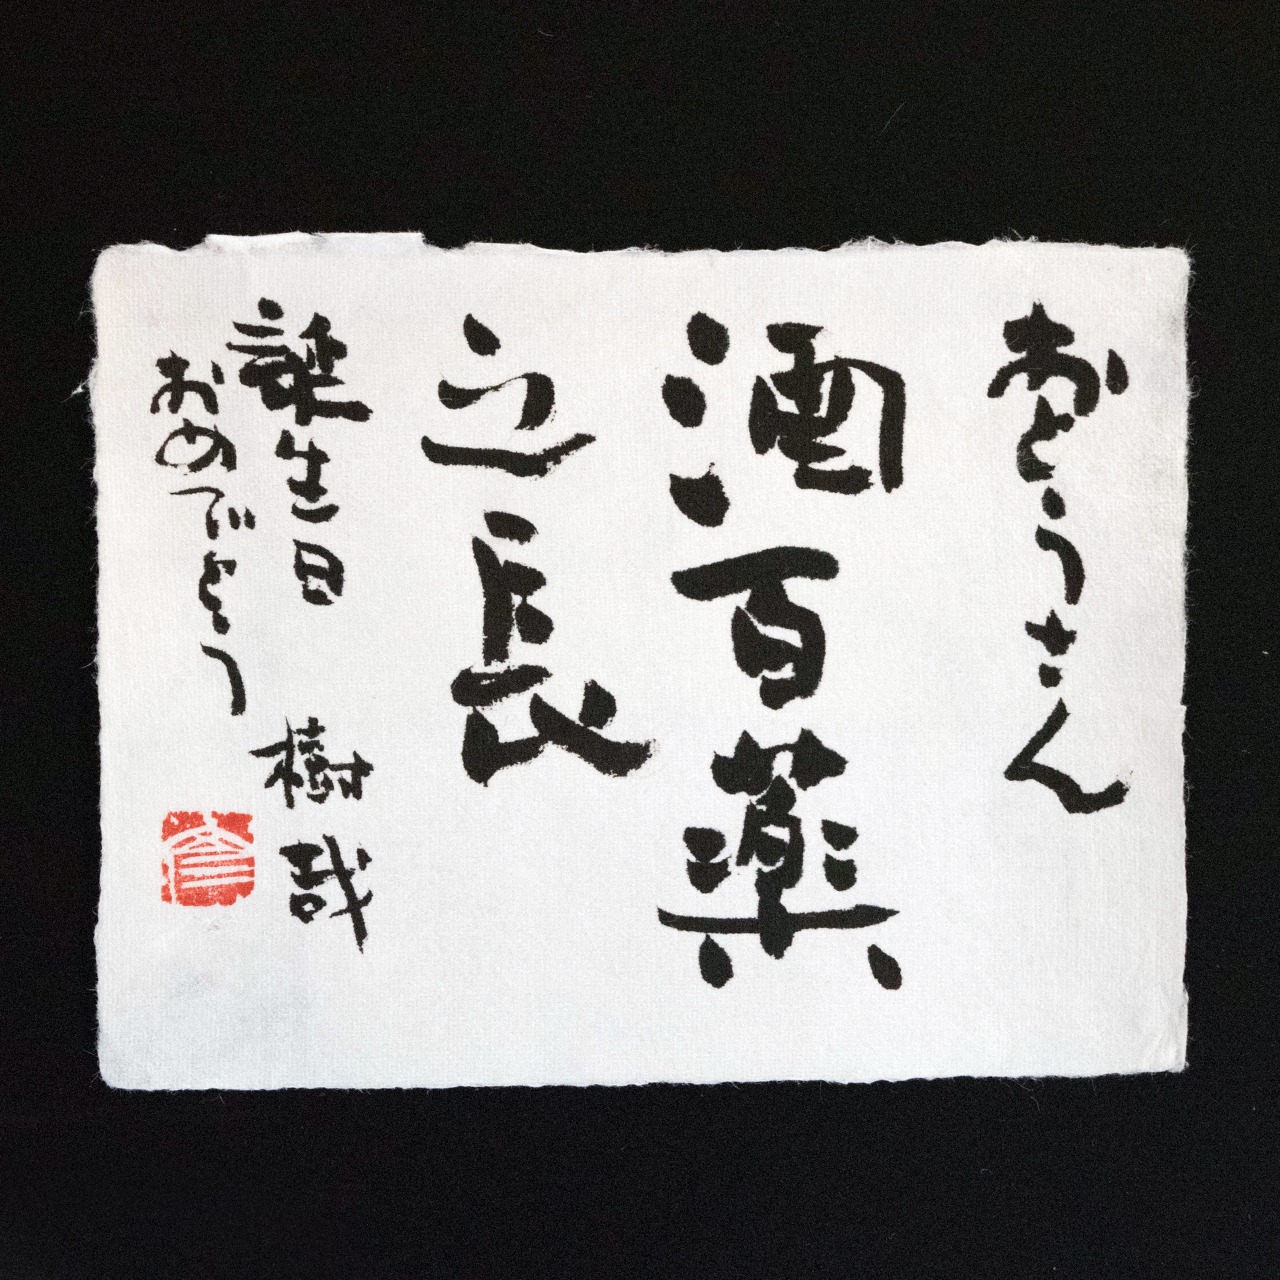 おとうさん
酒百薬
之長
誕生日
おめでとう
樹哉